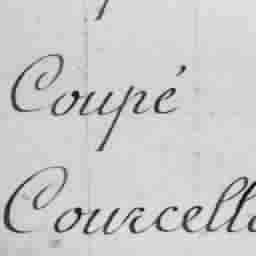 Coupé
Courcell